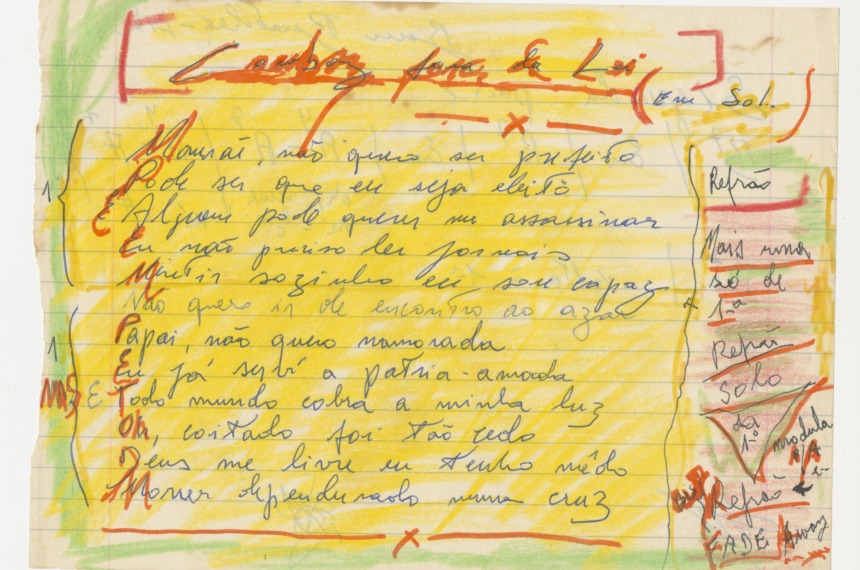 Cowboy fora da Lei
(Em Sol.)
x
1 Mamãe, não quero ser prefeito
Pode ser que eu seja eleito
E Alguem pode querer me assassinar
Eu não preciso ler jornais
Mentir sozinho eu sou capaz
Não quero ir de encontro ao azar
1 Papai, não quero namorada
Eu já servi a patria-amada
E Todo mundo cobra a minha luz
Oh, coitado foi tão cedo
Deus me livre eu tenho mêdo
Morrer dependurado numa cruz
x
Refrão
Mais uma
só de
1ª
Refrão
Solo
modula
Refrão
FADE Away